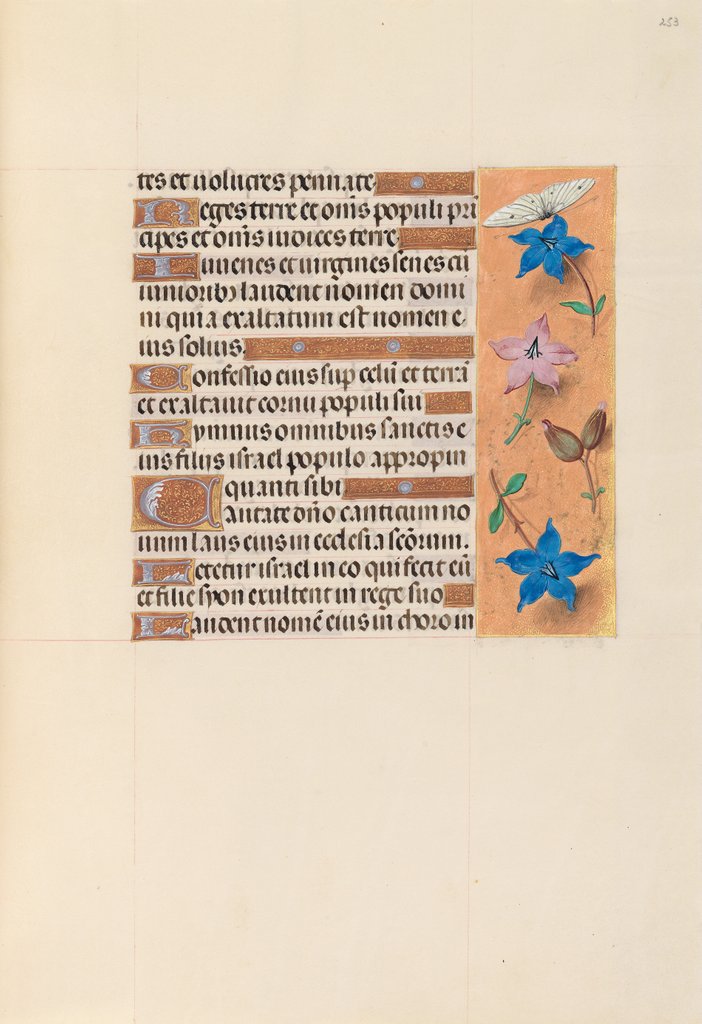 253
tes et uolucres pennate
Reges terre et om̄s populi pri
cipes et om̄s iudices terre
Iuuenes et uirgines senes cū
iuniorib⁊ laudent nomen domi
ni quia exaltatum est nomen e
ius solius.
Confessio eius sup celū et terrā
et exaltauit cornu populi sui
Hymnus omnibus sanctis e
ius filijs israel populo appropin
quanti sibi
Cantate dn̄o canticum no
uum laus eius in ecclesia scōrum.
Letetur israel in eo qui fecit eū
et filie syon exultent in rege suo
Laudent nomē eius in choro in